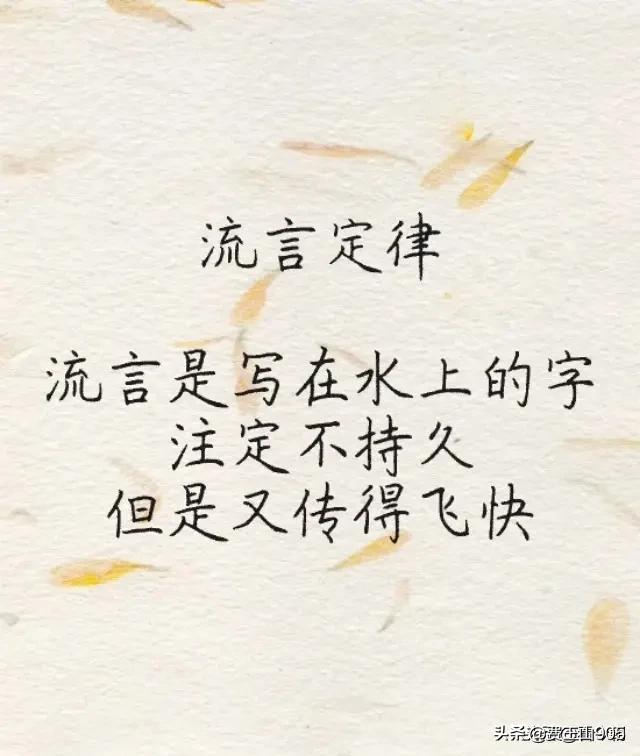 流言定律
流言是写在水上的字
注定不持久
但是又传得飞快